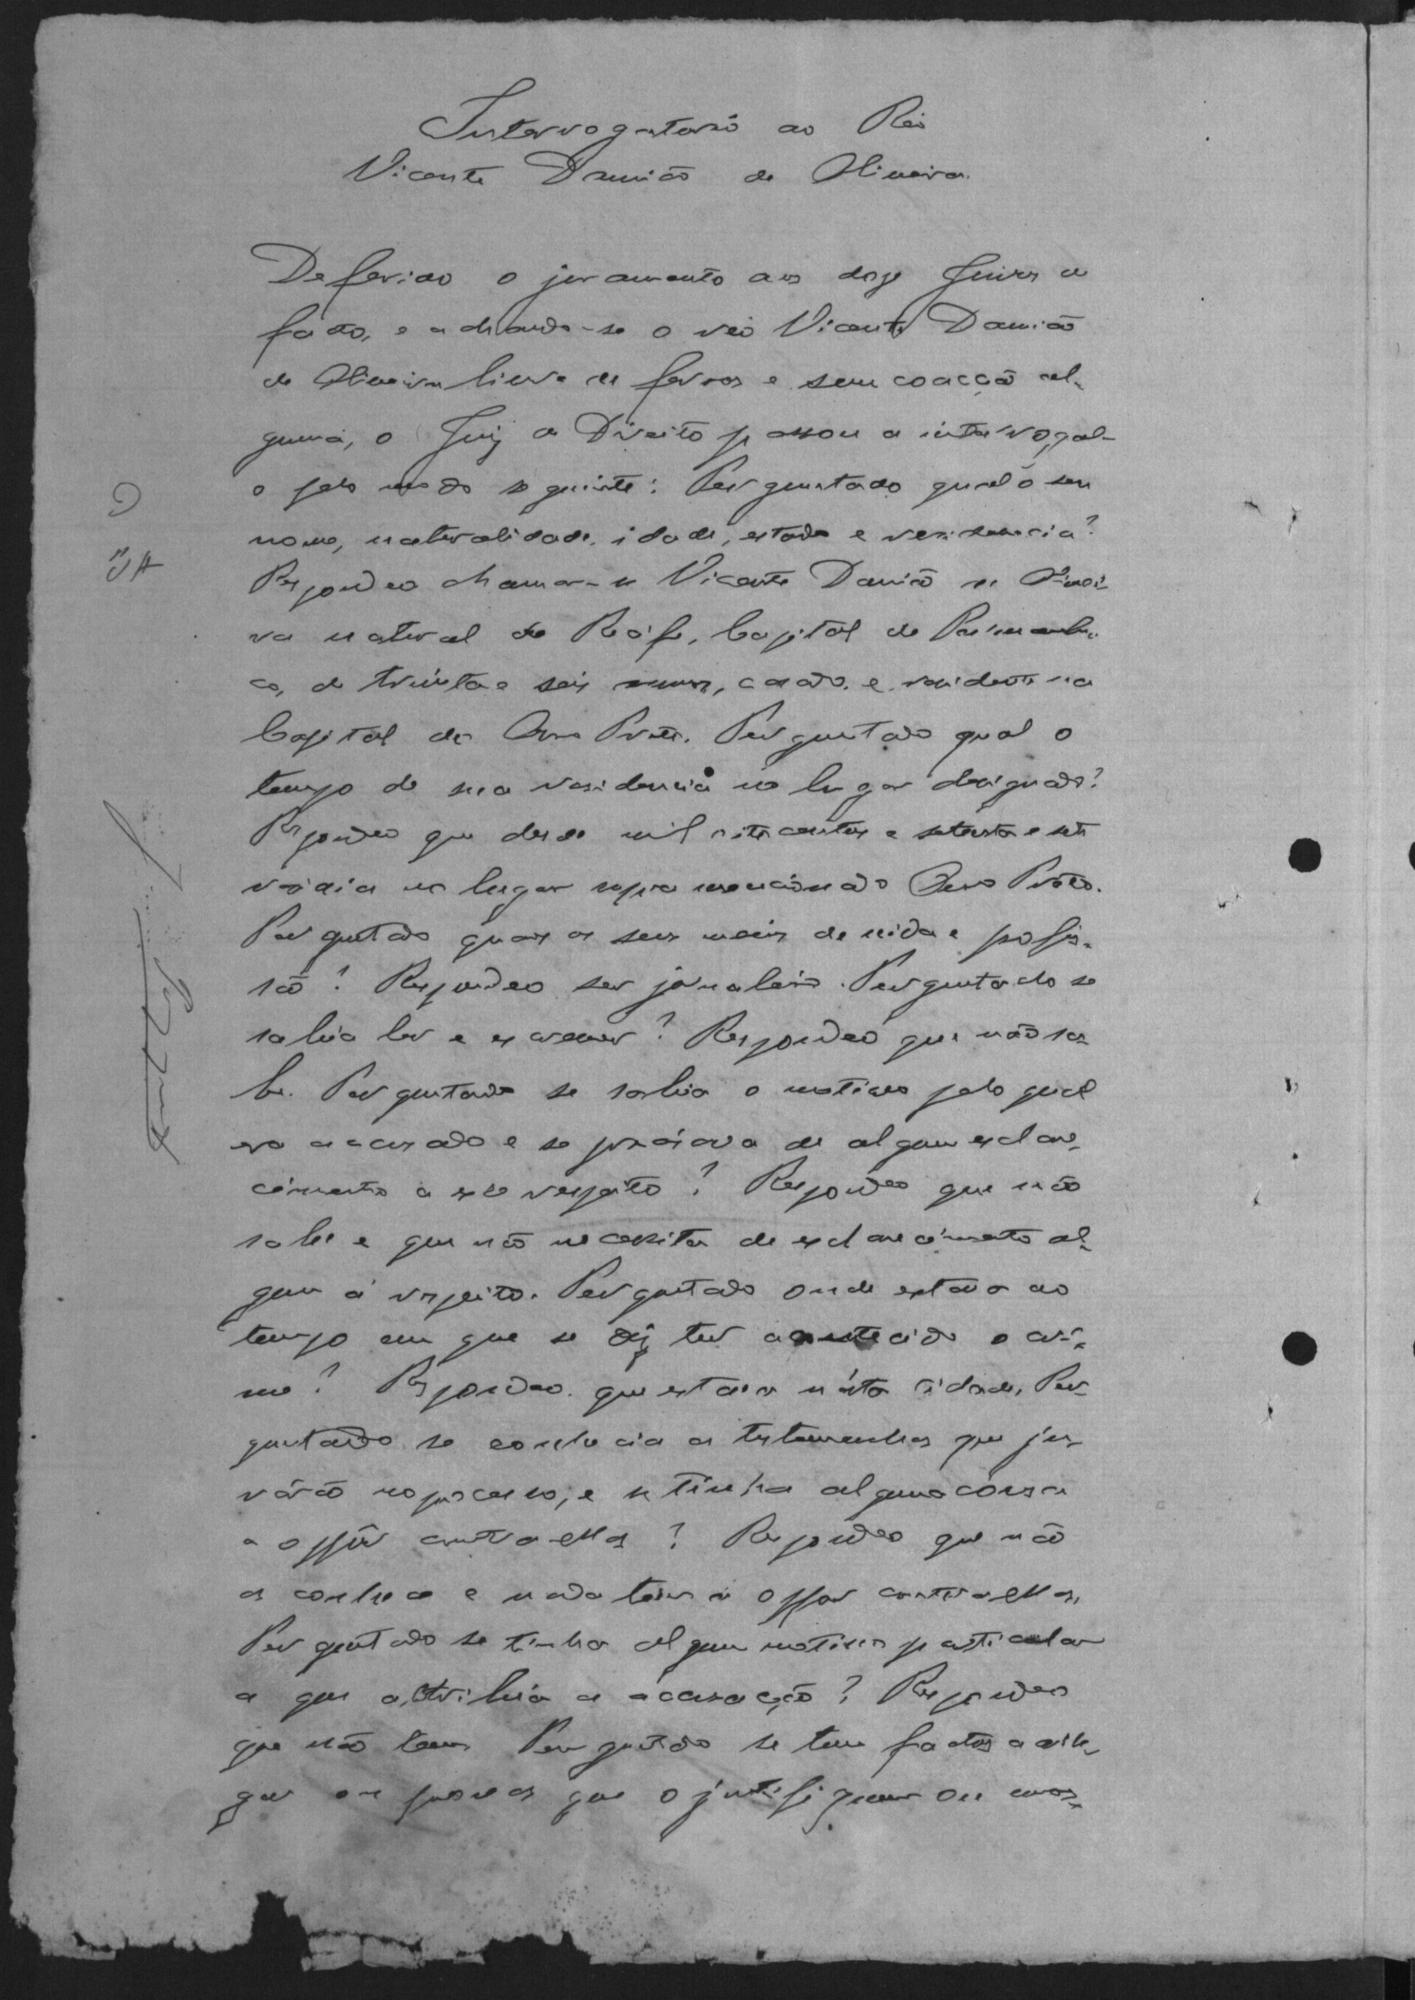 Interrogatorio ao Réo
Vicente Damião de Oliveira.
Deferido o juramento aos doze Juizes de
facto, e achando-se o réo Vicente Damião
de Oliveira livre de ferros e sem coacção al-
guma, o Juiz de Direito passou a interrogal-
o pelo modo seguinte: Perguntado qual o seu
nome, naturalidade, idade, estado e residencia?
Respondeo chamar-se Vicente Damião de Olivei-
ra natural do Recife, Capital de Pernambu-
co, de trinta e seis annos, casado, e residente na
Capital de Ouro Preto. Perguntado qual o
tempo de sua residencia no lugar designado?
Respondeo que desde mil oitocentos e setenta e sete
residia no lugar supra mencionado Ouro Preto.
Perguntado quaes os seus meios de vida e profis-
são? Respondeo ser jornaleiro. Perguntado se
sabia ler e escrever? Respondeo que não sa-
be. Perguntado se sabia o motivo pelo qual
era accusado e se precisava de algum esclare-
cimento a esse respeito? Respondeo que não
sabe e que não necessita de esclarecimento al-
gum á respeito. Perguntado onde estava ao
tempo em que se diz ter acontecido o cri-
me? Respondeo que estava n'esta cidade. Per-
guntado se conhecia as testemunhas que ju-
rárão no processo, e se tinha alguma cousa
a oppôr contra ellas? Respondeo que não
as conhece e nada tem a oppor contra ellas.
Perguntado se tinha algum motivo particular
a que attribuia a accusação? Respondeo
que não tem. Perguntado se tem factos a alle-
gar ou provas que o justifiquem ou mos-